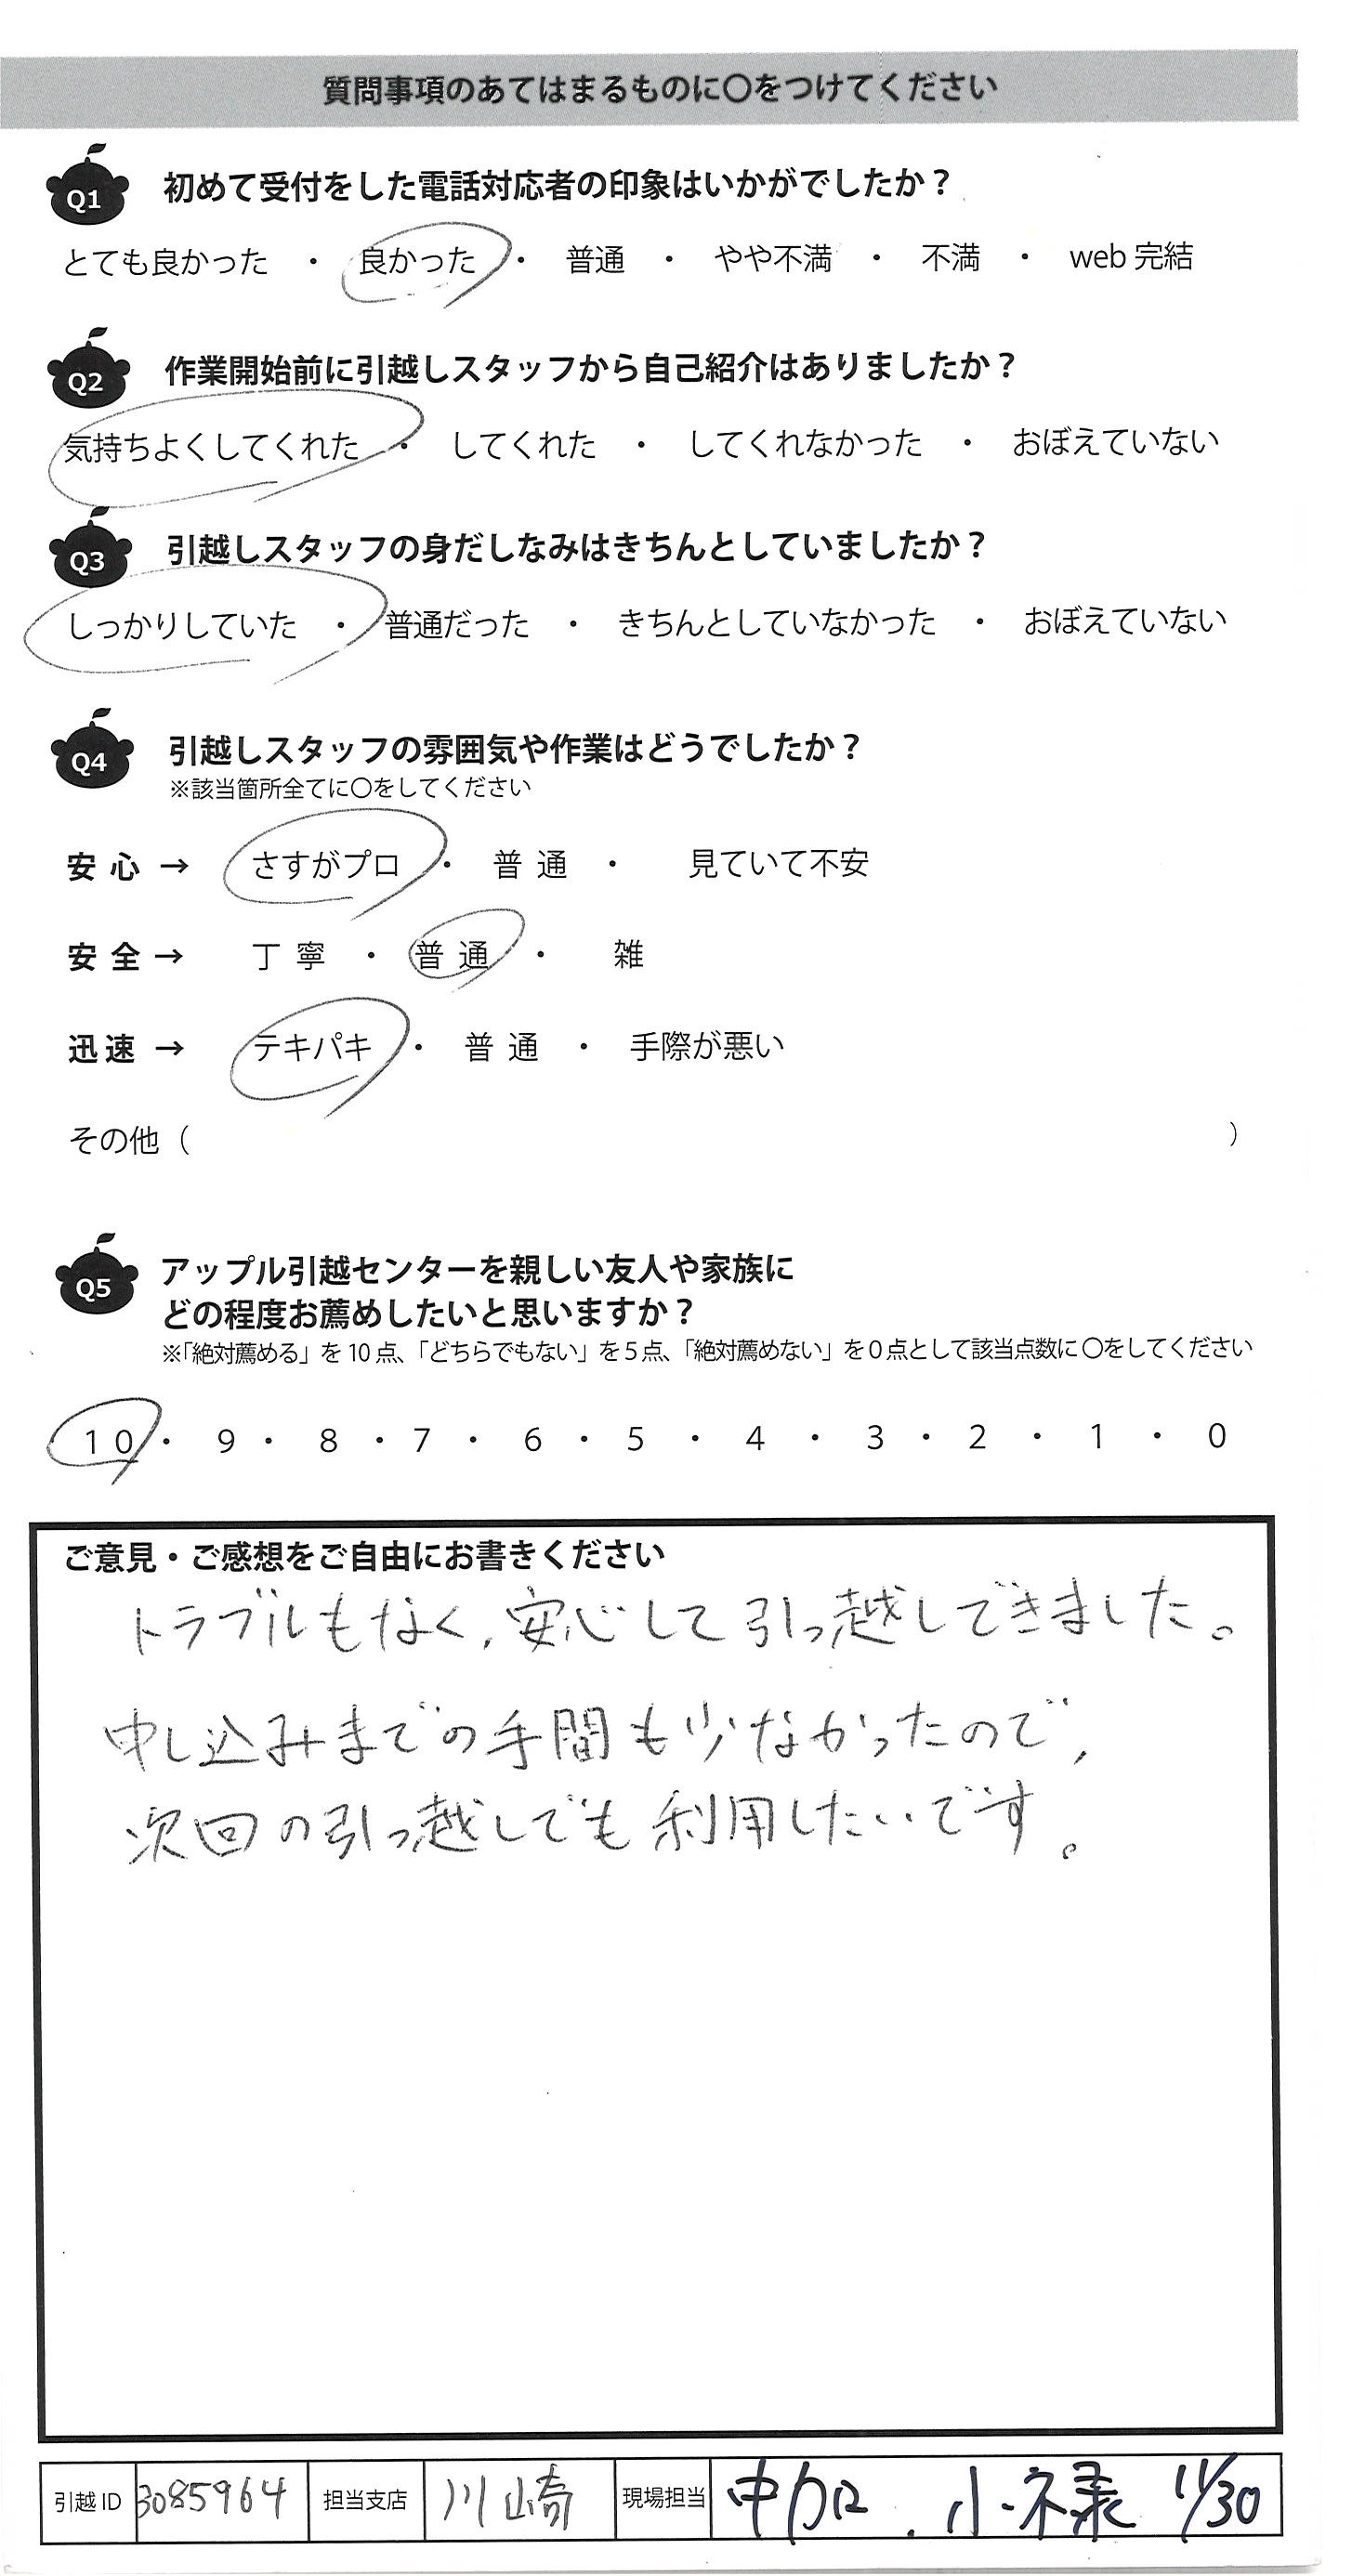 質問事項のあてはまるものに〇をつけてください
Q1 初めて受付をした電話対応者の印象はいかがでしたか？
とても良かった ・ 良かった ・ 普通 ・ やや不満 ・ 不満 ・ web 完結
Q2 作業開始前に引越しスタッフから自己紹介はありましたか？
気持ちよくしてくれた ・ してくれた ・ してくれなかった ・ おぼえていない
Q3 引越しスタッフの身だしなみはきちんとしていましたか？
しっかりしていた ・ 普通だった ・ きちんとしていなかった ・ おぼえていない
Q4 引越しスタッフの雰囲気や作業はどうでしたか？
※該当箇所全てに〇をしてください
安心 → さすがプロ ・ 普通 ・ 見ていて不安
安全 → 丁寧 ・ 普通 ・ 雑
迅速 → テキパキ ・ 普通 ・ 手際が悪い
その他（ ）
Q5 アップル引越センターを親しい友人や家族に
どの程度お薦めしたいと思いますか？
※「絶対薦める」を 10 点、「どちらでもない」を 5 点、「絶対薦めない」を 0 点として該当点数に〇をしてください
10 ・ 9 ・ 8 ・ 7 ・ 6 ・ 5 ・ 4 ・ 3 ・ 2 ・ 1 ・ 0
ご意見・ご感想をご自由にお書きください
トラブルもなく、安心して引っ越しできました。
申し込みまでの手間も少なかったので、
次回の引っ越しでも利用したいです。
引越 ID 3085964 担当支店 川崎 現場担当 11/30